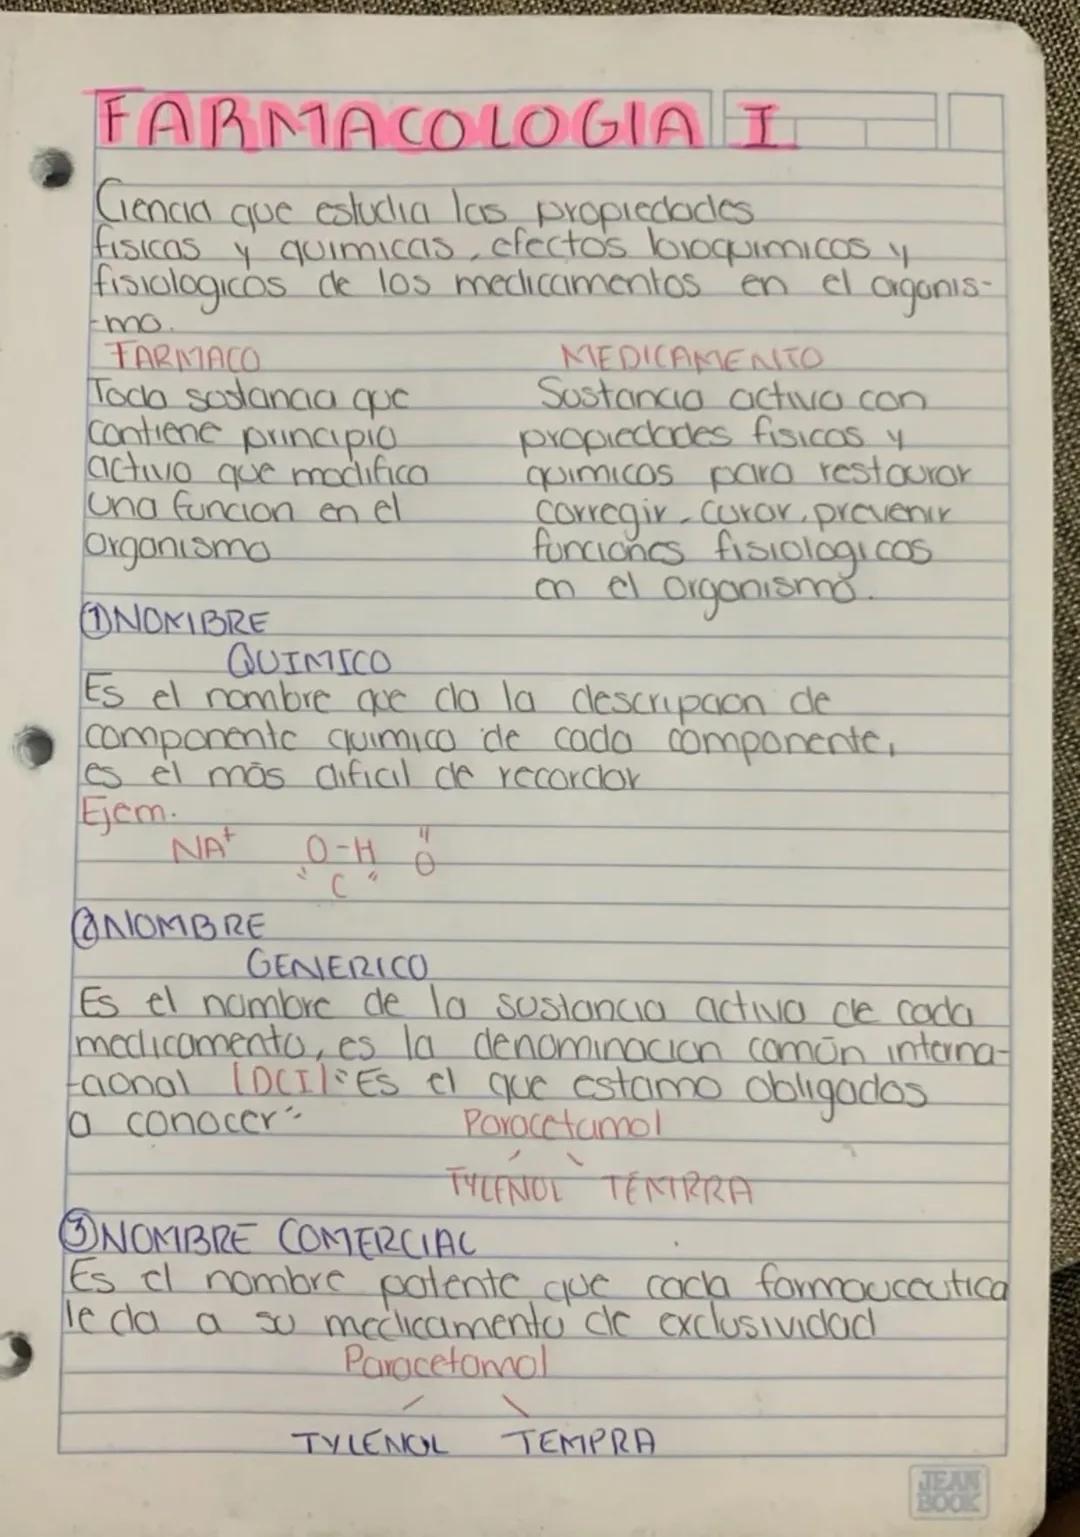 FARMACOLOGIA I
Ciencia que estudia las propiedades
fisicas y quimicas, efectos bioquimicos y
fisiologicos de los medicamentos en el organis-
-mo.
FARMACO
Toda sustancia que
contiene principio
activo que modifica
una funcion en el
organismo
MEDICAMENTO
Sustancia activa con
propiedades fisicas y
quimicas para restaurar
corregir, curar, prevenir
funciones fisiologicas
en el organismo.
① NOMBRE
QUIMICO
Es el nombre que da la descripcion de
componente quimico de cada componente,
es el más dificil de recordar
Ejem.
NA+ O-H O
C
② NOMBRE
GENERICO
Es el nombre de la sustancia activa de cada
medicamento, es la denominacion común interna-
-cional [DCI] "Es el que estamo obligados
a conocer"
Paracetamol
TYLENOL TEMRRA
③ NOMBRE COMERCIAL
Es el nombre patente que cada farmauceutica
le da a su medicamento de exclusividad
Paracetamol
TYLENOL TEMPRA
JEAN
BOOK